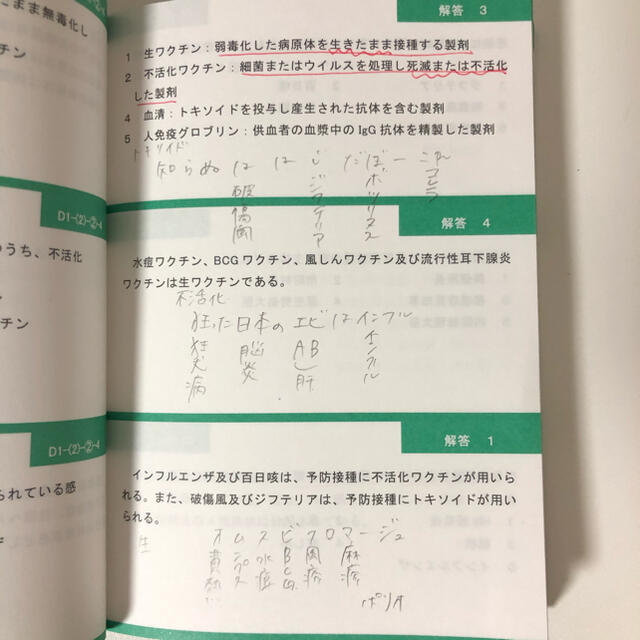 たまま無毒化し
解答 3
1 生ワクチン：弱毒化した病原体を生きたまま接種する製剤
2 不活化ワクチン：細菌またはウイルスを処理し死滅または不活化
した製剤
4 血清：トキソイドを投与し産生された抗体を含む製剤
5 人免疫グロブリン：供血者の血漿中の IgG 抗体を精製した製剤
トキソイド
知らぬ は はじ だぼー これ
破傷風 ジフテリア ボツリヌス コレラ
D1-(2)-②-4
のうち、不活化
チン
解答 4
水痘ワクチン、BCG ワクチン、風しんワクチン及び流行性耳下腺炎
ワクチンは生ワクチンである。
不活化
狂った日本のエビはインフル
狂犬病 脳炎 AB肝 インフル
D1-(2)-②-4
られている感
解答 1
インフルエンザ及び百日咳は、予防接種に不活化ワクチンが用いら
れる。また、破傷風及びジフテリアは、予防接種にトキソイドが用い
られる。
生
オムスビクロマージュ
黄熱 ムンプス 水痘 麻疹
ポリオ